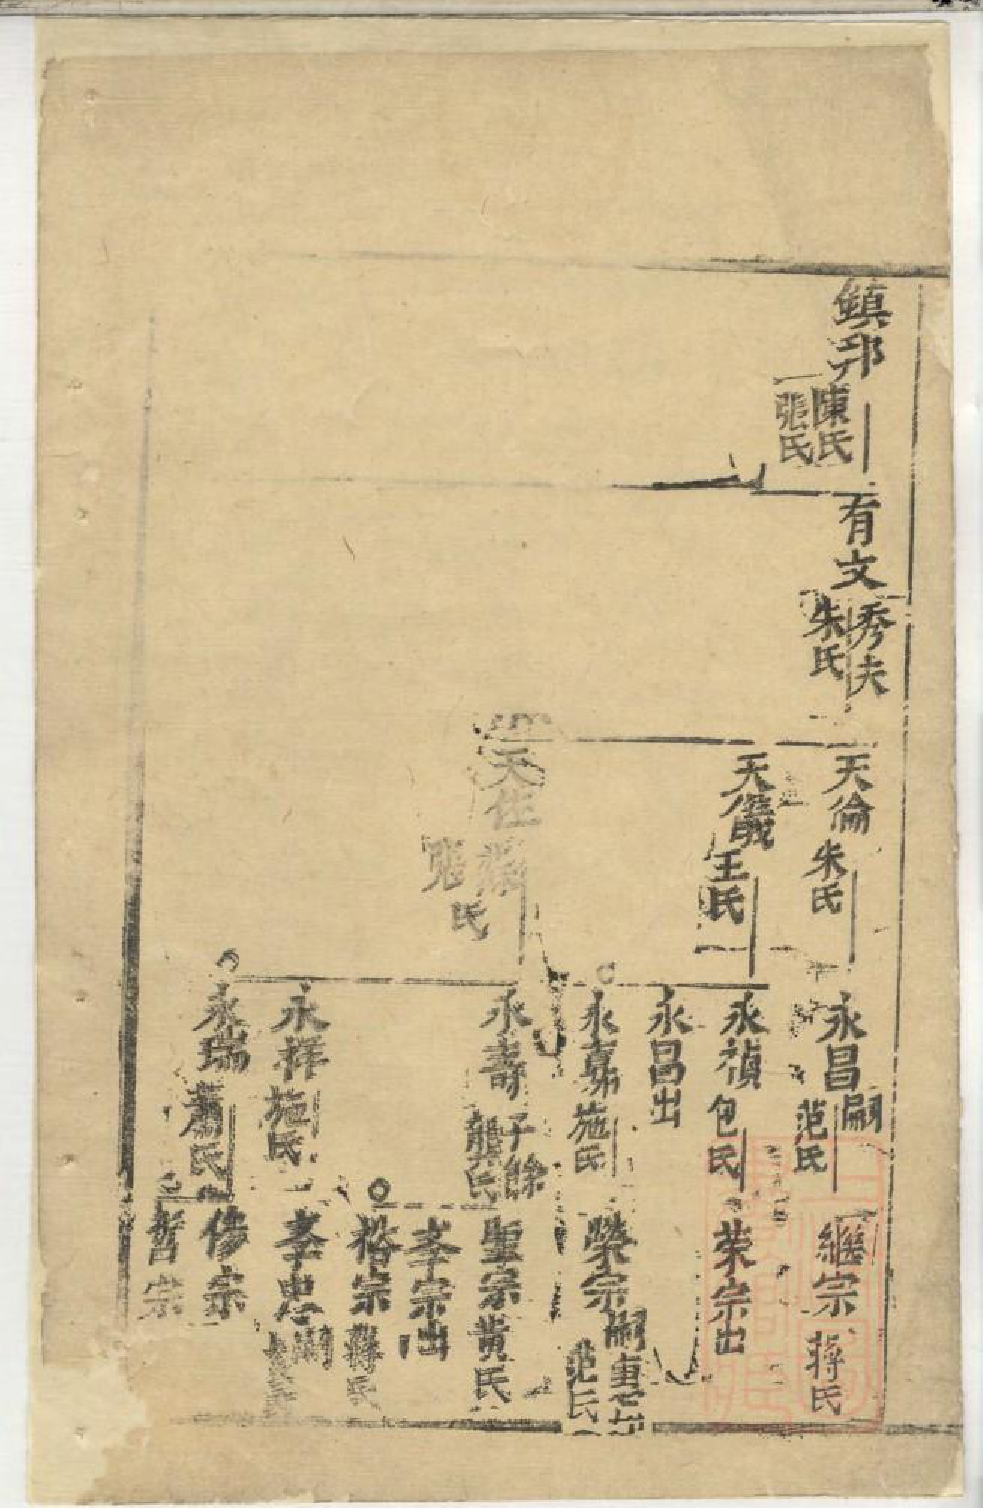 鎮邦
陳氏
張氏
有文
秀夫
朱氏
天倫
朱氏
天儀
王氏
天任
張
氏
永昌
嗣
范氏
永禎
包氏
永昌出
永嘉
施氏
永壽
子餘
龔氏
永祥
施氏
永瑞
蕭氏
繼宗
蔣氏
荣宗出
榮宗
嗣
范氏
聖宗
黄氏
孝宗出
裕宗
蔣氏
孝忠
嗣
修宗
哲宗